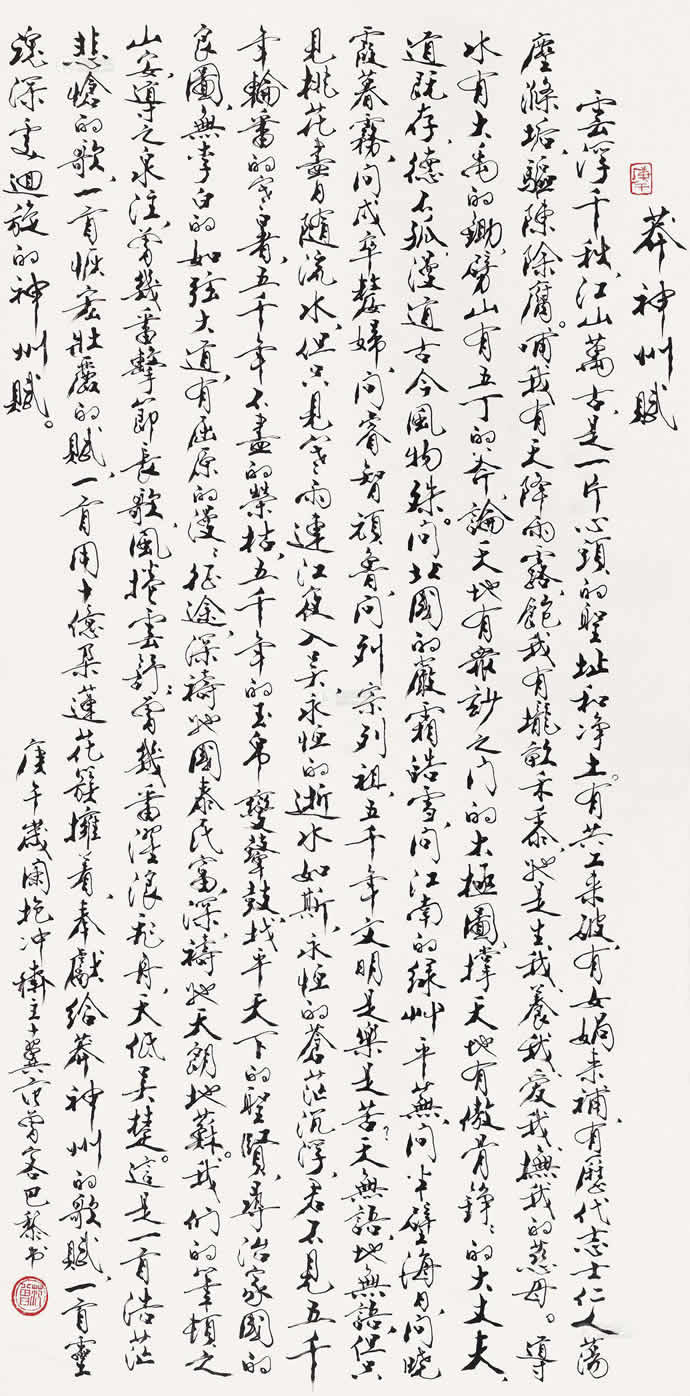 庚午
莽神州賦
雲浮千秋、江山萬古、是一片心頭的聖址和净土。有共工來破、有女媧來補、有歷代志士仁人蕩
塵滌垢、驅陳除腐。哺我有天降雨露、飽我有壠畝禾黍、她是生我、養我、愛我、撫我的慈母。導
水有大禹的鋤、劈山有五丁的斧、論天地有衆妙之门的太極圖、撑天地有傲骨錚〻的大丈夫、
道既存、德不孤、漫道古今風物殊。问北國的嚴霜皓雪、问江南的緑艸平蕪、问半壁海日、问曉
霞暮霧、问戍卒嫠婦、问睿智頑魯、问列宗列祖、五千年文明是樂是苦？天無語、地無語、但只
見桃花盡日随流水、但只見寒雨連江夜入吴、永恒的逝水如斯、永恒的蒼茫沉浮、君不見五千
年輪番的寒暑、五千年不盡的榮枯、五千年的玉帛鼙鼓、找平天下的聖賢、尋治家國的
良圖、無李白的如弦大道、有屈原的漫〻征途、深禱她國泰民富、深禱她天朗地蘇。我们的筆頓之
山安、導之泉注、曾幾番擊節長歌、風捲雲舒、曾幾番濯浪飛舟、天低吴楚。這是一首浩茫
悲愴的歌、一首恢宏壯麗的賦、一首用十億朵蓮花簇擁着、奉獻給莽神州的歌賦、一首靈
魂深處迴旋的神州賦。
庚午歲闌抱冲齋主十翼范曾客巴黎书